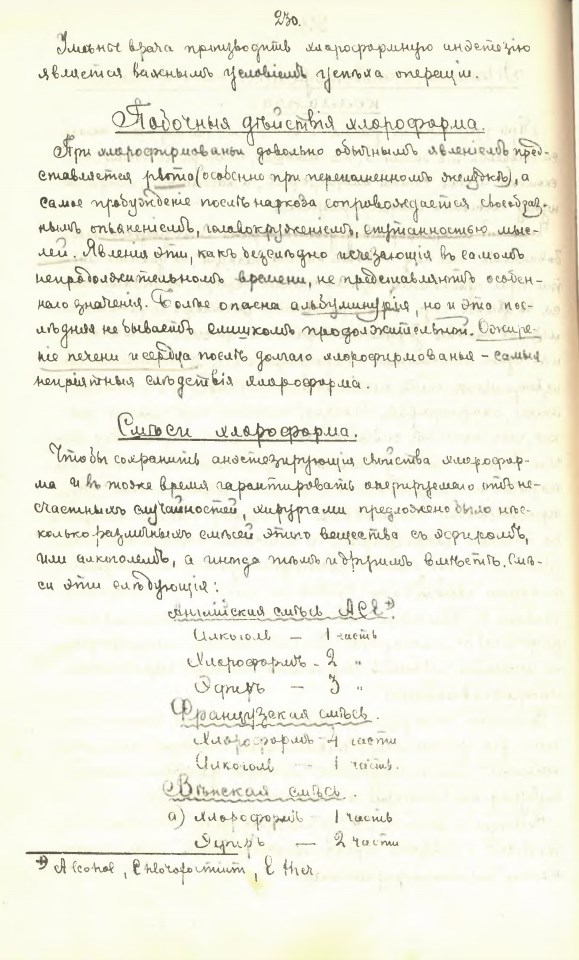 230.
Умѣнье врача производить хлороформную анэстезію
является важнымъ условіемъ успѣха операціи.
Побочныя дѣйствія хлороформа.
При хлороформированьи довольно обычнымъ явленіемъ пред-
ставляется рвота (особенно при переполненномъ желудкѣ), а
самое пробужденіе послѣ наркоза сопровождается своеобраз-
нымъ опьяненіемъ, головокруженіемъ, спутанностью мыс-
лей. Явленія эти, какъ безслѣдно исчезающія въ самомъ
непродолжительномъ времени, не представляютъ особен-
наго значенія. Болѣе опасна альбуминурія, но и это пос-
лѣдняя не бываетъ слишкомъ продолжительной. Ожире-
ніе печени и сердца послѣ долгаго хлороформированья – самыя
непріятныя слѣдствія хлороформа.
Смѣси хлороформа.
Чтобы сохранить анэстезирующія свойства хлорофор-
ма и въ тоже время гарантировать оперируемаго отъ не-
счастныхъ случайностей, хирургами предложено было нѣс-
колько различныхъ смѣсей этого вещества съ эфиромъ,
или алкоголемъ, а иногда тѣмъ и другимъ вмѣстѣ. Смѣ-
си эти слѣдующія:
Англійская смѣсь ACE*).
Алкоголь – 1 часть
Хлороформъ – 2 "
Эфиръ – 3 "
Французская смѣсь.
Хлороформъ – 4 части
Алкоголь – 1 часть.
Вѣнская смѣсь.
а) Хлороформъ – 1 часть
Эфиръ – 2 части
*) Alcohol, Chloroformium, Ether